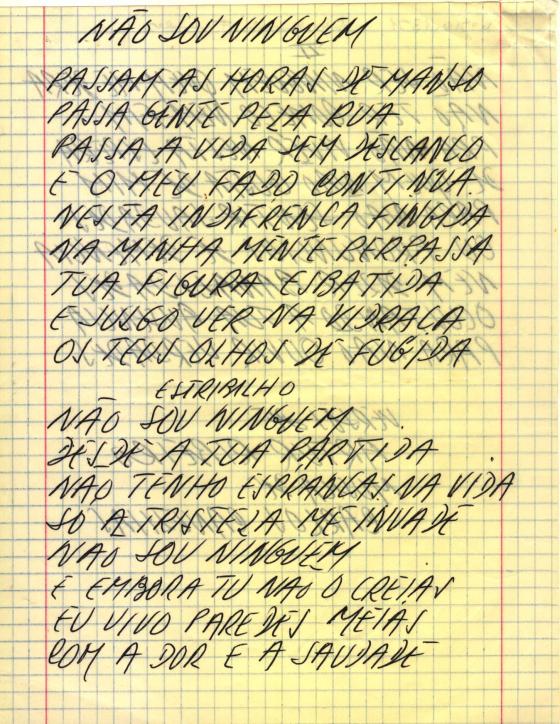 NÃO SOU NINGUEM
PASSAM AS HORAS DE MANSO
PASSA GENTE PELA RUA
PASSA A VIDA SEM DESCANÇO
E O MEU FADO CONTINUA.
NESTA INDIFRENÇA FINGIDA
NA MINHA MENTE PERPASSA
TUA FIGURA ESBATIDA
E JULGO VER NA VIDRAÇA
OS TEUS OLHOS DE FUGIDA
ESTRIBILHO
NÃO SOU NINGUEM
DESDE A TUA PARTIDA
NÃO TENHO ESPRANÇAS NA VIDA
SO A TRISTEZA ME INVADE
NÃO SOU NINGUEM
E EMBORA TU NÃO O CREIAS
EU VIVO PAREDES MEIAS
COM A DOR E A SAUDADE